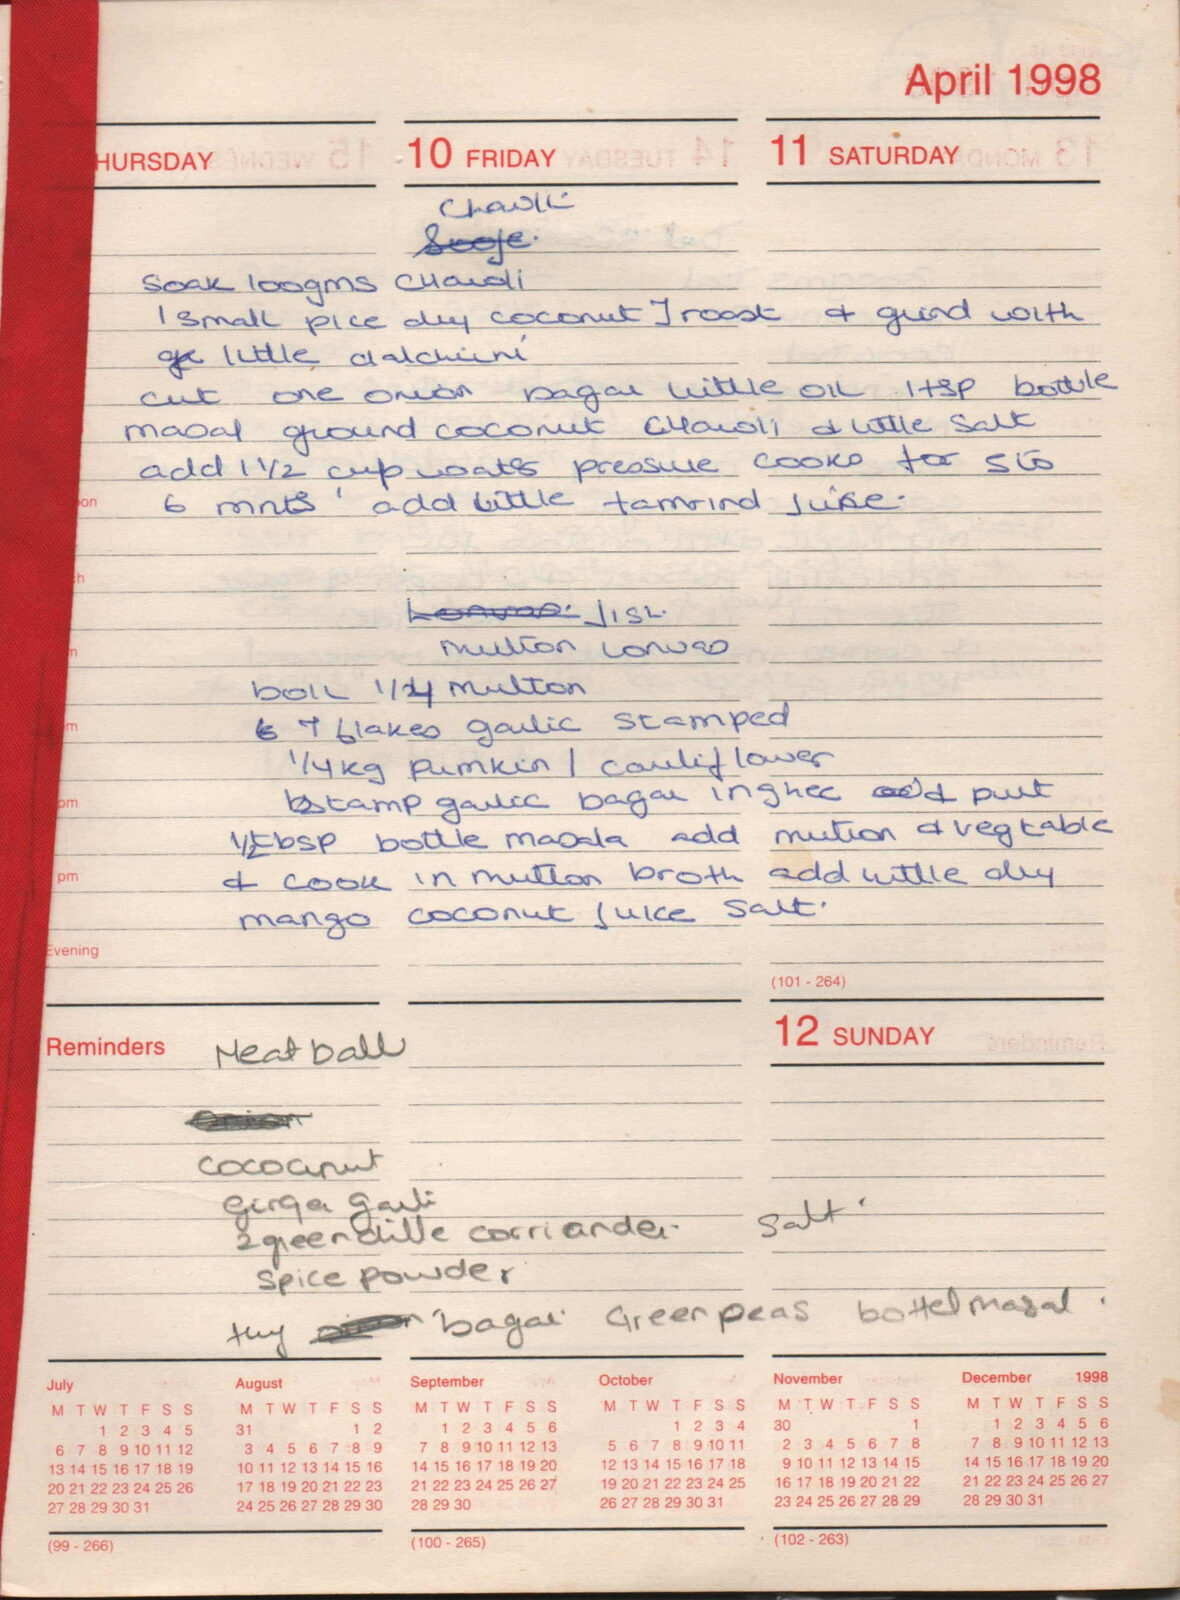 April 1998
HURSDAY
10 FRIDAY
11 SATURDAY
Chawli
Sooje.
Soak 100gms Chawli
1 small pice dry coconut ] roast & grind with
little dalchini
cut one onion bagar little oil 1 tsp bottle
masal ground coconut Chawli & little salt
add 1 1/2 cup water pressure cooke for 5 to
6 mnts add little tamrind juise.
on
h
m
Lonvas. fish.
Mutton Lonvas
boil 1/4 mutton
m
6 7 flakes garlic stamped
1/4 kg pumkin / cauliflower
pm
stamp garlic bagar in ghee add put
1/2 tbsp bottle masala add mution & vegtable
pm
& cook in mutton broth add little dry
mango coconut juice salt.
Evening
(101 - 264)
Reminders
Meat ball
12 SUNDAY
Onion
cococnut
Girger garli
2 green chille corriander. salt
spice powder
bagar Green peas bottel masal.
July
M T W T F S S
1 2 3 4 5
6 7 8 9 10 11 12
13 14 15 16 17 18 19
20 21 22 23 24 25 26
27 28 29 30 31
August
M T W T F S S
31 1 2
3 4 5 6 7 8 9
10 11 12 13 14 15 16
17 18 19 20 21 22 23
24 25 26 27 28 29 30
September
M T W T F S S
1 2 3 4 5 6
7 8 9 10 11 12 13
14 15 16 17 18 19 20
21 22 23 24 25 26 27
28 29 30
October
M T W T F S S
1 2 3 4
5 6 7 8 9 10 11
12 13 14 15 16 17 18
19 20 21 22 23 24 25
26 27 28 29 30 31
November
M T W T F S S
30 1
2 3 4 5 6 7 8
9 10 11 12 13 14 15
16 17 18 19 20 21 22
23 24 25 26 27 28 29
December 1998
M T W T F S S
1 2 3 4 5 6
7 8 9 10 11 12 13
14 15 16 17 18 19 20
21 22 23 24 25 26 27
28 29 30 31
(99 - 266)
(100 - 265)
(102 - 263)